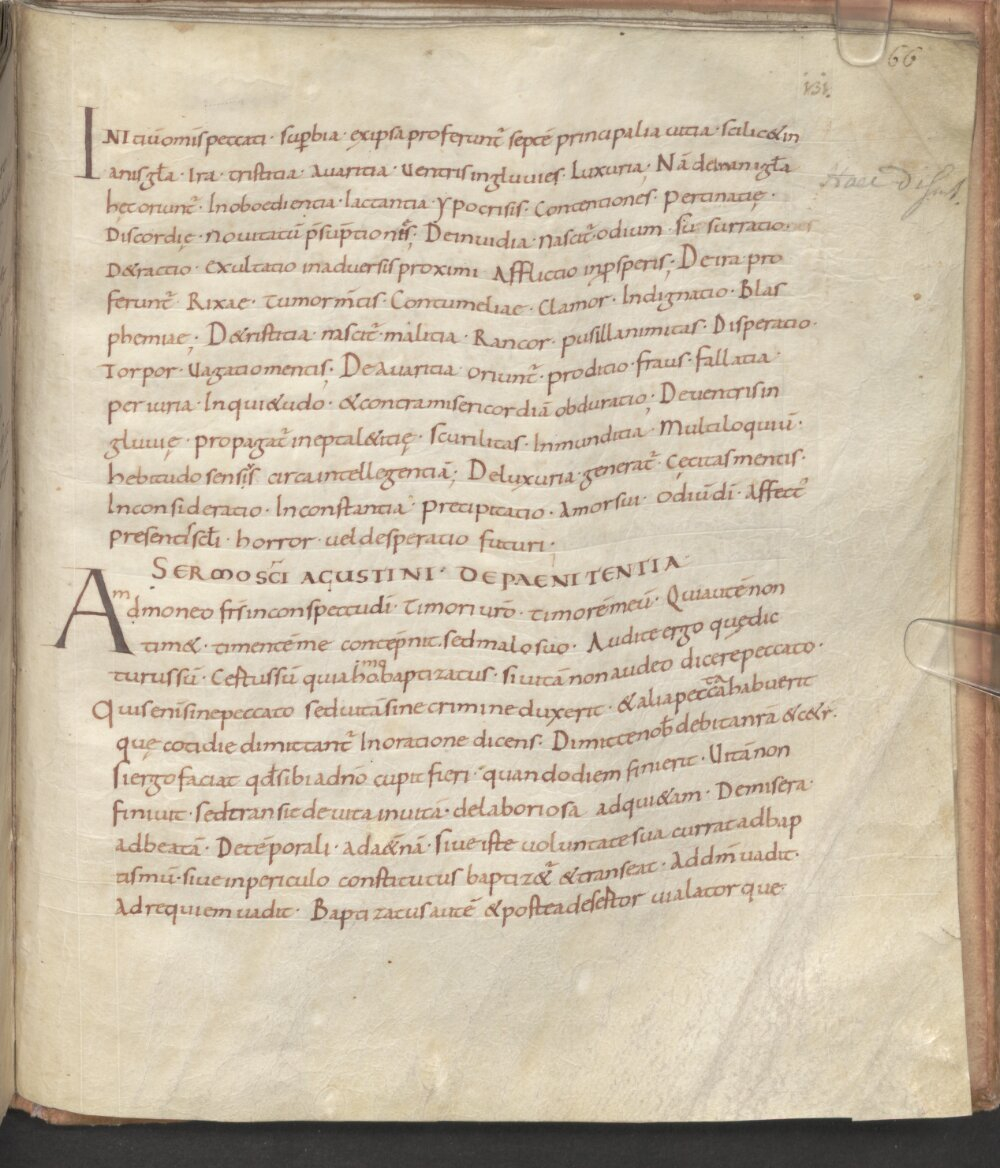 66
INITIŪ OMĪS PECCATI · sup̄bia · ex ipsa proferunt̄ septē principalia uitia · scilic& in
anis gła · Ira · tristitia · Auaritia · Uentris ingluuies · Luxuria · Nā de inani gła
hęc oriunt̄ · Inoboedientia · Iactantia · ypocrisis · Contentiones · pertinatię ·
Discordię · nouitatū p̄sūptionis · De inuidia · nascit̄ · odium · susurratio
D&ractio · exultatio in aduersis proximi · Afflictio in p̄speris ; De ira pro
ferunt̄ · Rixae · tumor m̄tis · Contumeliae · Clamor · Indignatio · Blas
phemiae ; D&ristitia · nascit̄ · malitia · Rancor · pusillanimitas · Disperatio ·
Torpor · Uagatio mentis ; De Auaritia oriunt̄ · proditio · fraus · fallatia
periuria · Inqui&udo · & contra misericordiā obduratio ; De uentris in
gluuię · propagat̄ inepta l&itię · scurilitas · Inmunditia · Multiloquiū ·
hebitudo sensus circa intellegentiā ; De luxuria · generat̄ · Cęcitas mentis ·
Inconsideratio · Inconstantia · Precipitatio · Amor sui · odiū dī · Affect̄
presentis sc̄li · horror · uel desperatio futuri ·
SERMO SC̄I AGUSTINI · DE PAENITENTIA
Admoneo fr̄s in conspectu dī · Timori ur̄o · timorē meū · Qui autē non
tim& · timentē me contēpnit · sed malo suo · Audite ergo quę dic
turus sū · Certus sū quia homo baptizatus · si uitā non audeo dicere peccato ·
Quis enī sine peccato sed uitā sine crimine duxerit · & alia peccata habuerit
quę cotidie dimittant̄ In oratione dicens · Dimitte nob̄ debita nr̄a & c&r ·
si ergo faciat qd̄ sibi a dn̄o cupit fieri · quando diem finierit · Uitā non
finiuit · sed transit de uita in uitā · de laboriosa ad qui&am · De misera
ad beatā · De tēporali · ad a&nā · siue iste uoluntate sua currat ad bap
tismū · siue in periculo constitutus baptiz&ur & transeat · Ad dn̄m uadit ·
Ad requiem uadit · Baptizatus autē & postea desertor uialator que